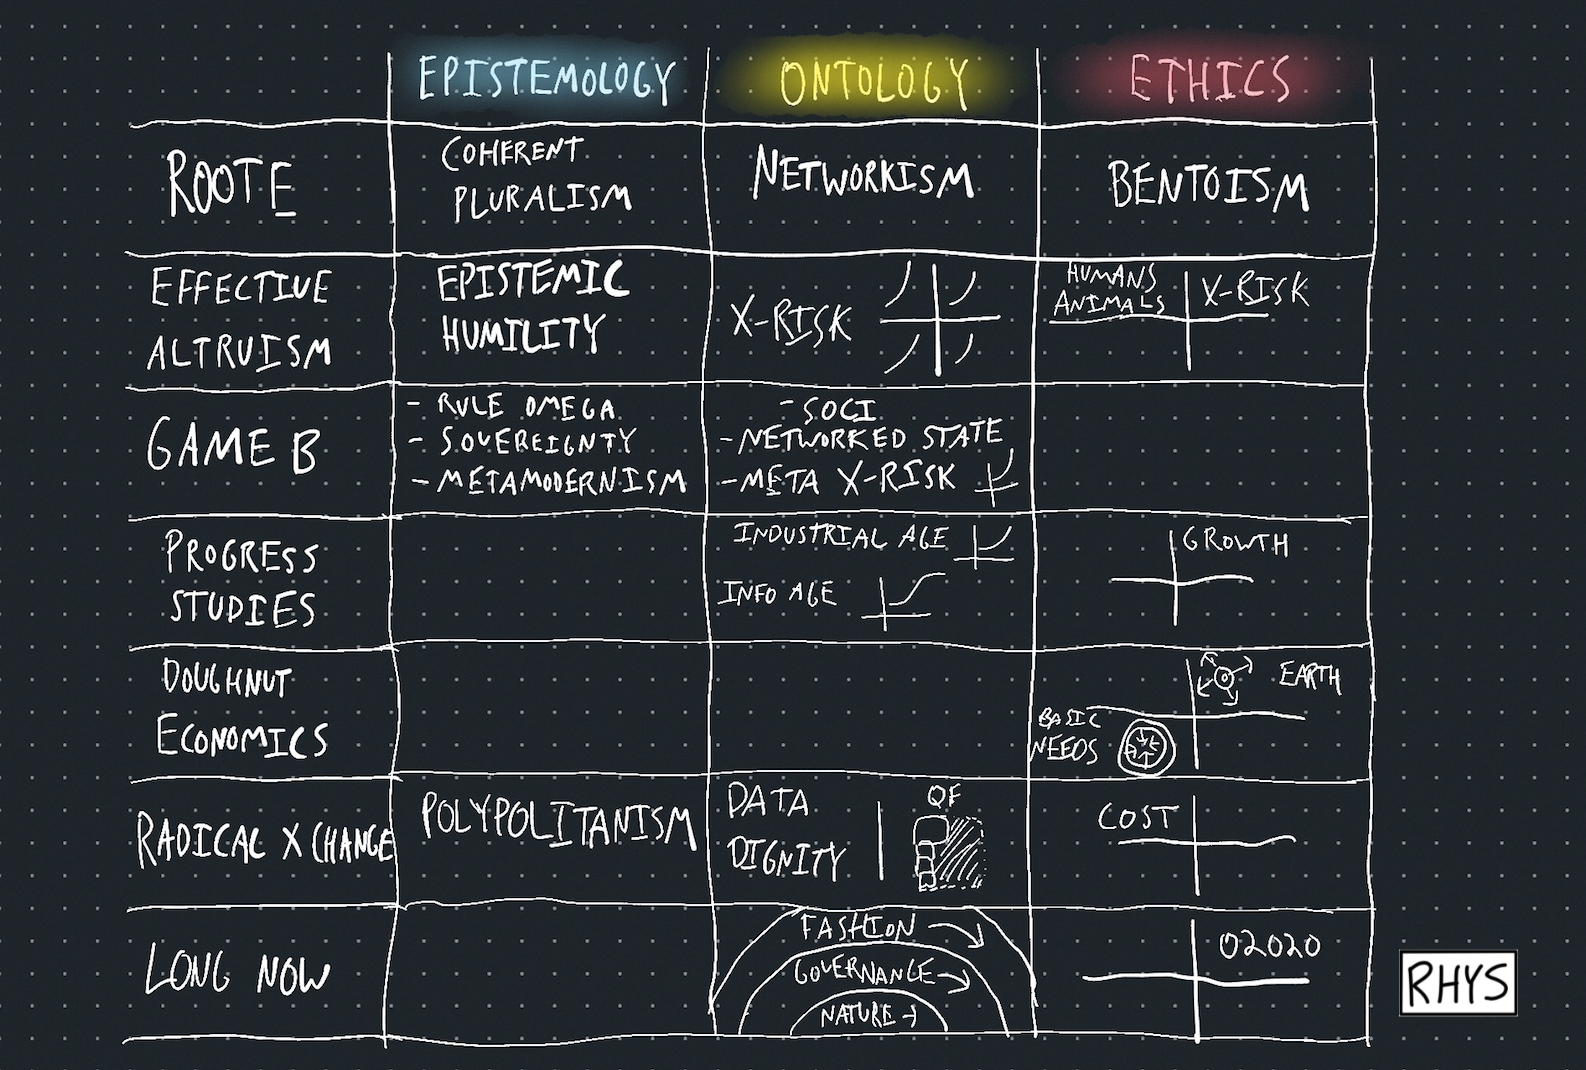 EPISTEMOLOGY ONTOLOGY ETHICS
ROOTE
COHERENT
PLURALISM
NETWORKISM
BENTOISM
EFFECTIVE
ALTRUISM
EPISTEMIC
HUMILITY
X-RISK
HUMANS
ANIMALS
X-RISK
GAME B
- RULE OMEGA
- SOVEREIGNTY
- METAMODERNISM
- SOCI
- NETWORKED STATE
- META X-RISK
PROGRESS
STUDIES
INDUSTRIAL AGE
INFO AGE
GROWTH
DOUGHNUT
ECONOMICS
EARTH
BASIC
NEEDS
RADICAL X CHANGE
POLYPOLITANISM
DATA
DIGNITY
QF
COST
LONG NOW
FASHION
GOVERNANCE
NATURE
02020
RHYS